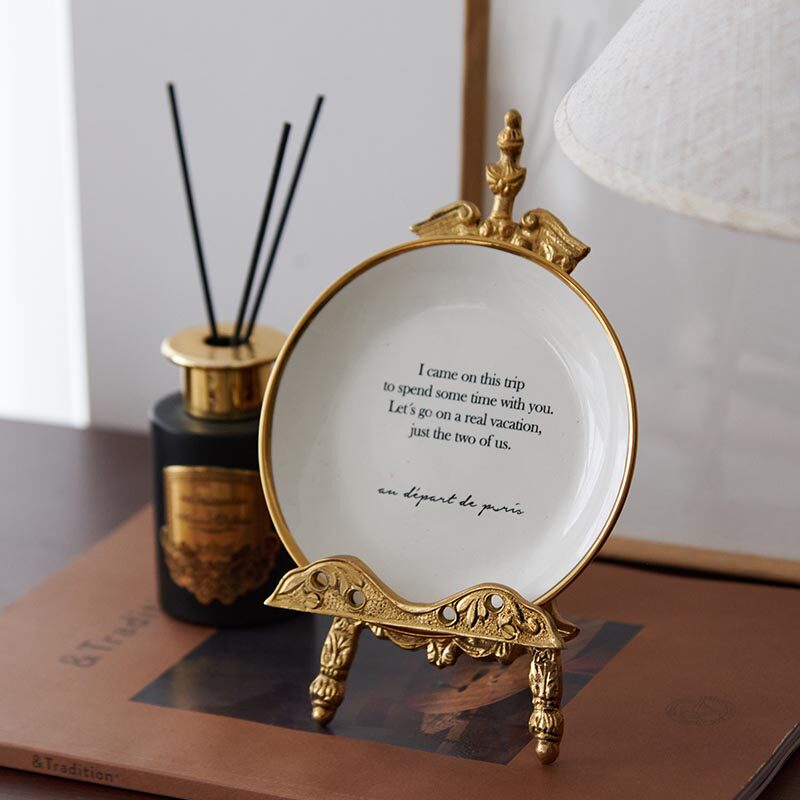 I came on this trip
to spend some time with you.
Let's go on a real vacation,
just the two of us.
au départ de puris
&Tradition